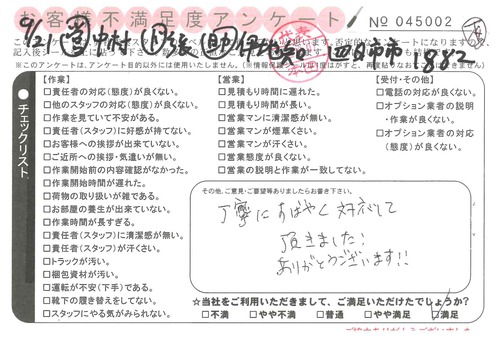 お客様不満足度アンケート No 045002
9/21 営 中村 四日市市 1882
※このアンケートは、アンケート目的以外には使用いたしません。
チェックリスト
【作業】
□責任者の対応(態度)が良くない。
□他のスタッフの対応(態度)が良くない。
□作業を見ていて不安がある。
□責任者(スタッフ)に好感が持てない。
□お客様への挨拶が出来ていない。
□ご近所への挨拶・気遣いが無い。
□作業開始前の内容確認がなかった。
□作業開始時間が遅れた。
□荷物の取り扱いが雑である。
□お部屋の養生が出来ていない。
□作業時間が長すぎる。
□責任者(スタッフ)に清潔感が無い。
□責任者(スタッフ)が汗くさい。
□トラックが汚い。
□梱包資材が汚い。
□運転が不安(下手)である。
□靴下の履き替えをしてない。
□スタッフにやる気がみられない。
【営業】
□見積もり時間に遅れた。
□見積もり時間が長い。
□営業マンに清潔感が無い。
□営業マンが煙草くさい。
□営業マンが汗くさい。
□営業態度が良くない。
□営業の説明と作業が一致してない。
【受付・その他】
□電話の対応が良くない。
□オプション業者の説明
・作業が良くない。
□オプション業者の対応
(態度)が良くない。
その他、ご意見・ご要望等ありましたらお書き下さい。
丁寧にすばやく対応して
頂きました!
ありがとうございます!!
☆当社をご利用いただきまして、ご満足いただけたでしょうか?
□不満 □やや不満 □普通 □やや満足 □満足